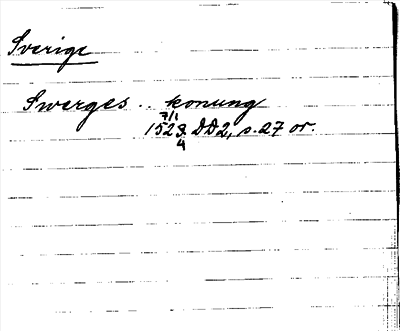 Sverige
Swerges .. konung
7/1
1523. DD2, s. 27 or.
4